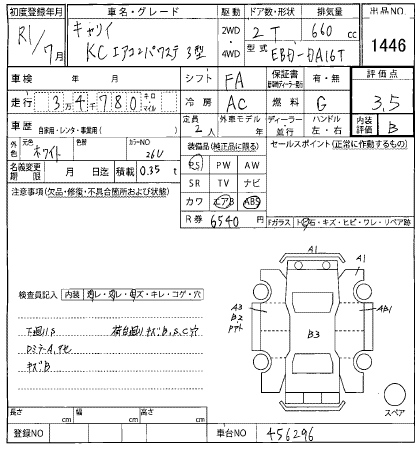 初度登録年月 車名・グレード 駆動 ドア数・形状 排気量 出品NO
R1/7月 キャリイ 2WD・4WD 2 T 660 cc 1446
KC エアコンパワステ 3型 型式 EBD-DA16T
車検 年 月 シフト FA 保証書 有・無 評価点
走行 3万4千780キロ・マイル 冷房 AC 燃料 G 3.5
車歴 自家用・レンタ・事業用( ) 定員 2人 外車モデル 年 ディーラー・並行 ハンドル 左・右 内装評価 B
外色 元色 ホワイト 色替 カラーNO 26U 装備品(純正品に限る) セールスポイント(正常に作動するもの)
PS PW AW
名義変更期限 月 日迄 積載 0.35 t SR TV ナビ
注意事項(欠品・修復・不具合箇所および状態) カワ エアB ABS
R券 6540 円 Fガラス ト・石・キズ・ヒビ・ワレ・リペア跡
検査員記入 内装 コレ・キズ・キレ・コゲ・穴
下廻りS 荷台廻りキズB,S,C穴
DミラーA
キズB
A1
A1
A3
B2
B3
AB1
スペア
長さ cm 幅 cm 高さ cm
登録NO 車台NO 456296